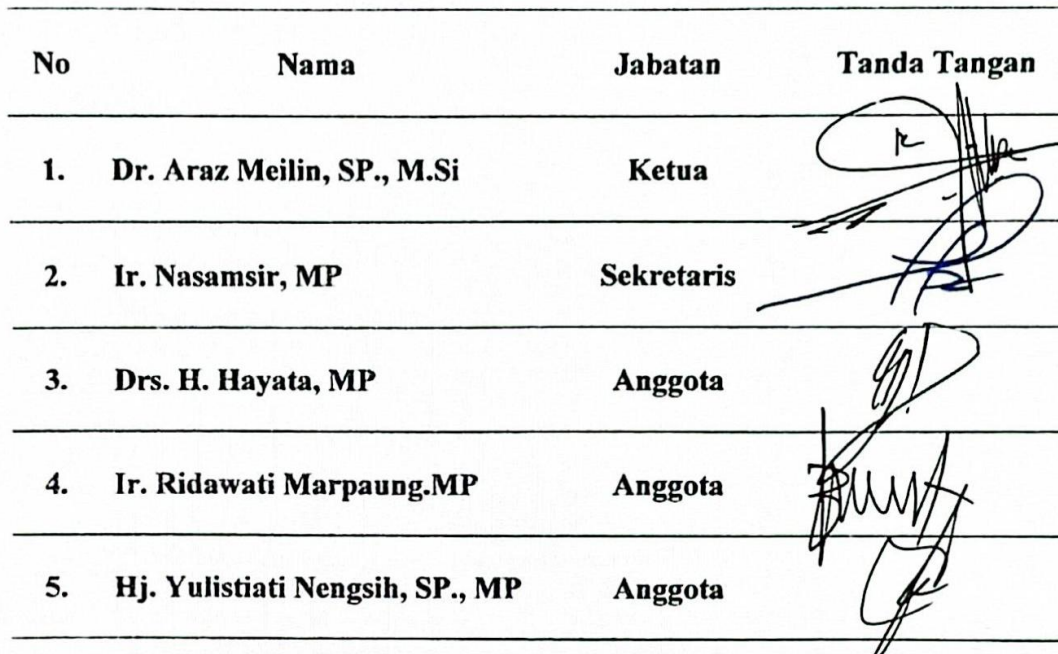 No Nama Jabatan Tanda Tangan
1. Dr. Araz Meilin, SP., M.Si Ketua
2. Ir. Nasamsir, MP Sekretaris
3. Drs. H. Hayata, MP Anggota
4. Ir. Ridawati Marpaung.MP Anggota
5. Hj. Yulistiati Nengsih, SP., MP Anggota